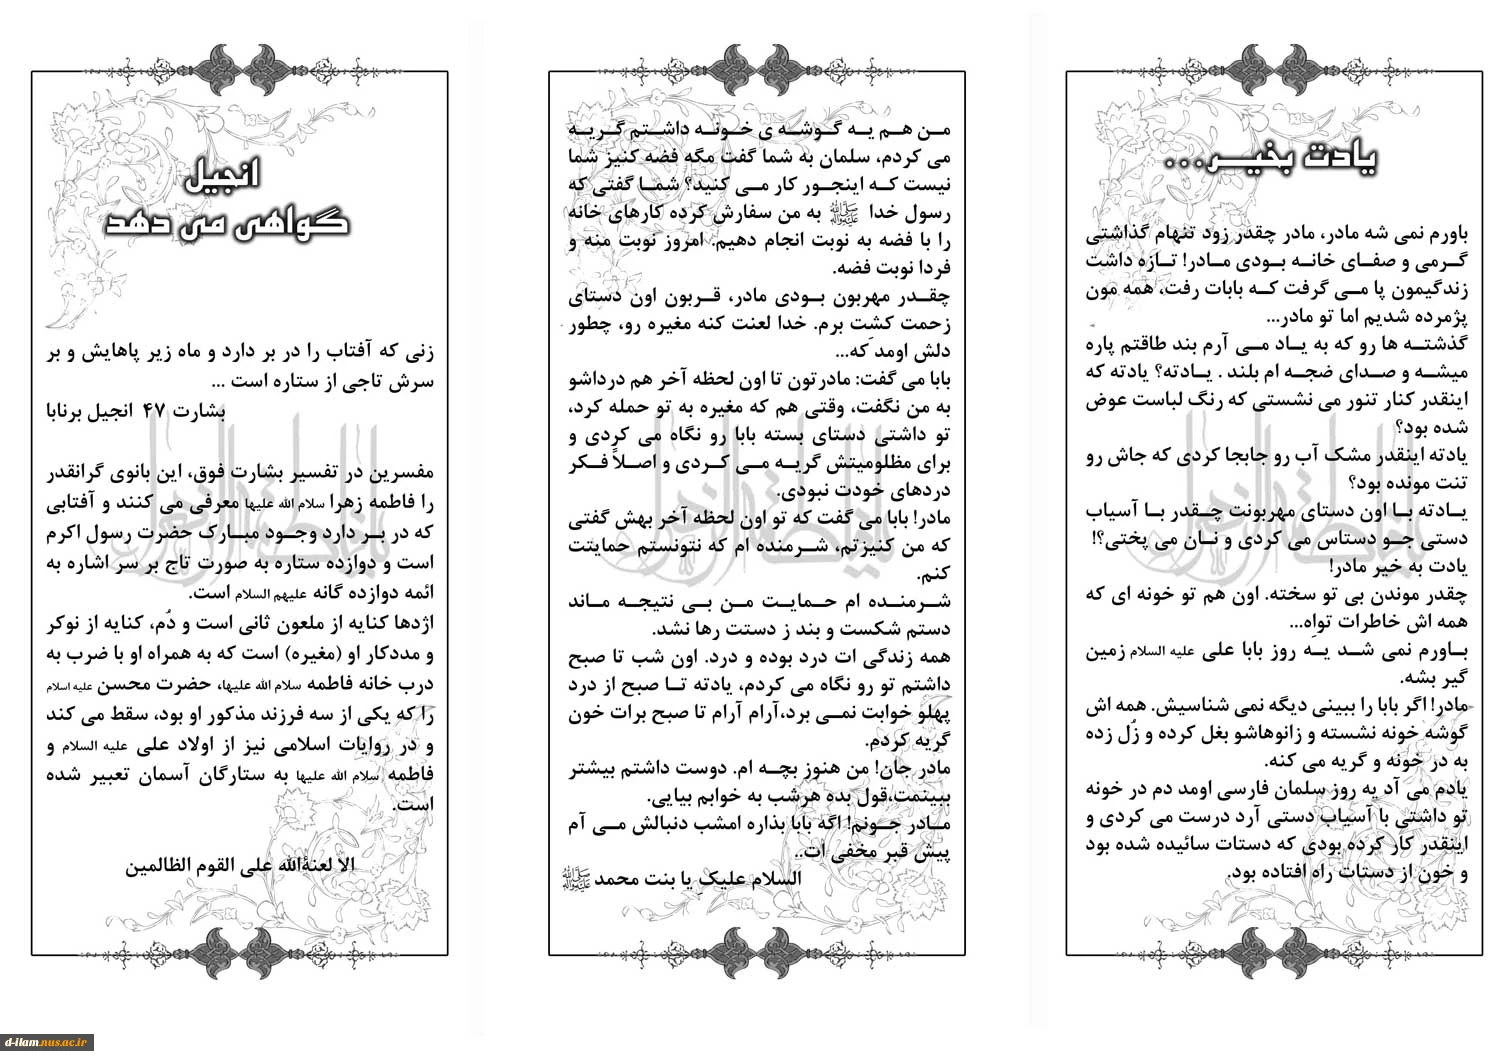 یادت بخیر...
باورم نمی شه مادر، مادر چقدر زود تنهام گذاشتی
گرمی و صفای خانه بودی مادر! تازه داشت
زندگیمون پا می گرفت که بابات رفت، همه مون
پژمرده شدیم اما تو مادر...
گذشته ها رو که به یاد می آرم بند طاقتم پاره
میشه و صدای ضجه ام بلند . یادته؟ یادته که
اینقدر کنار تنور می نشستی که رنگ لباست عوض
شده بود؟
یادته اینقدر مشک آب رو جابجا کردی که جاش رو
تنت مونده بود؟
یادته با اون دستای مهربونت چقدر با آسیاب
دستی جو دستاس می کردی و نان می پختی؟!
یادت به خیر مادر!
چقدر موندن بی تو سخته. اون هم تو خونه ای که
همه اش خاطرات تواِه...
باورم نمی شد یه روز بابا علی علیه السلام زمین
گیر بشه.
مادر! اگر بابا را ببینی دیگه نمی شناسیش. همه اش
گوشه خونه نشسته و زانوهاشو بغل کرده و زُل زده
به در خونه و گریه می کنه.
یادم می آد یه روز سلمان فارسی اومد دم در خونه
تو داشتی با آسیاب دستی آرد درست می کردی و
اینقدر کار کرده بودی که دستات سائیده شده بود
و خون از دستات راه افتاده بود.
من هم یه گوشه ی خونه داشتم گریه
می کردم، سلمان به شما گفت مگه فضه کنیز شما
نیست که اینجور کار می کنید؟ شما گفتی که
رسول خدا ﷺ به من سفارش کرده کارهای خانه
را با فضه به نوبت انجام دهیم. امروز نوبت منه و
فردا نوبت فضه.
چقدر مهربون بودی مادر، قربون اون دستای
زحمت کشت برم. خدا لعنت کنه مغیره رو، چطور
دلش اومد که...
بابا می گفت: مادرتون تا اون لحظه آخر هم درداشو
به من نگفت، وقتی هم که مغیره به تو حمله کرد،
تو داشتی دستای بسته بابا رو نگاه می کردی و
برای مظلومیتش گریه می کردی و اصلاً فکر
دردهای خودت نبودی.
مادر! بابا می گفت که تو اون لحظه آخر بهش گفتی
که من کنیزتم، شرمنده ام که نتونستم حمایتت
کنم.
شرمنده ام حمایت من بی نتیجه ماند
دستم شکست و بند ز دستت رها نشد.
همه زندگی ات درد بوده و درد. اون شب تا صبح
داشتم تو رو نگاه می کردم، یادته تا صبح از درد
پهلو خوابت نمی برد،آرام آرام تا صبح برات خون
گریه کردم.
مادر جان! من هنوز بچه ام. دوست داشتم بیشتر
ببینمت،قول بده هرشب به خوابم بیایی.
مادر جونم! اگه بابا بذاره امشب دنبالش می آم
پیش قبر مخفی ات..
السلام علیکِ یا بنت محمد ﷺ
انجیل
گواهی می دهد
زنی که آفتاب را در بر دارد و ماه زیر پاهایش و بر
سرش تاجی از ستاره است ...
بشارت ۴۷ انجیل برنابا
مفسرین در تفسیر بشارت فوق، این بانوی گرانقدر
را فاطمه زهرا سلام الله علیها معرفی می کنند و آفتابی
که در بر دارد وجود مبارک حضرت رسول اکرم
است و دوازده ستاره به صورت تاج بر سر اشاره به
ائمه دوازده گانه علیهم السلام است.
اژدها کنایه از ملعون ثانی است و دُم، کنایه از نوکر
و مددکار او (مغیره) است که به همراه او با ضرب به
درب خانه فاطمه سلام الله علیها، حضرت محسن علیه اسلام
را که یکی از سه فرزند مذکور او بود، سقط می کند
و در روایات اسلامی نیز از اولاد علی علیه السلام و
فاطمه سلام الله علیها به ستارگان آسمان تعبیر شده
است.
الا لعنةالله علی القوم الظالمین
d-ilam.nus.ac.ir